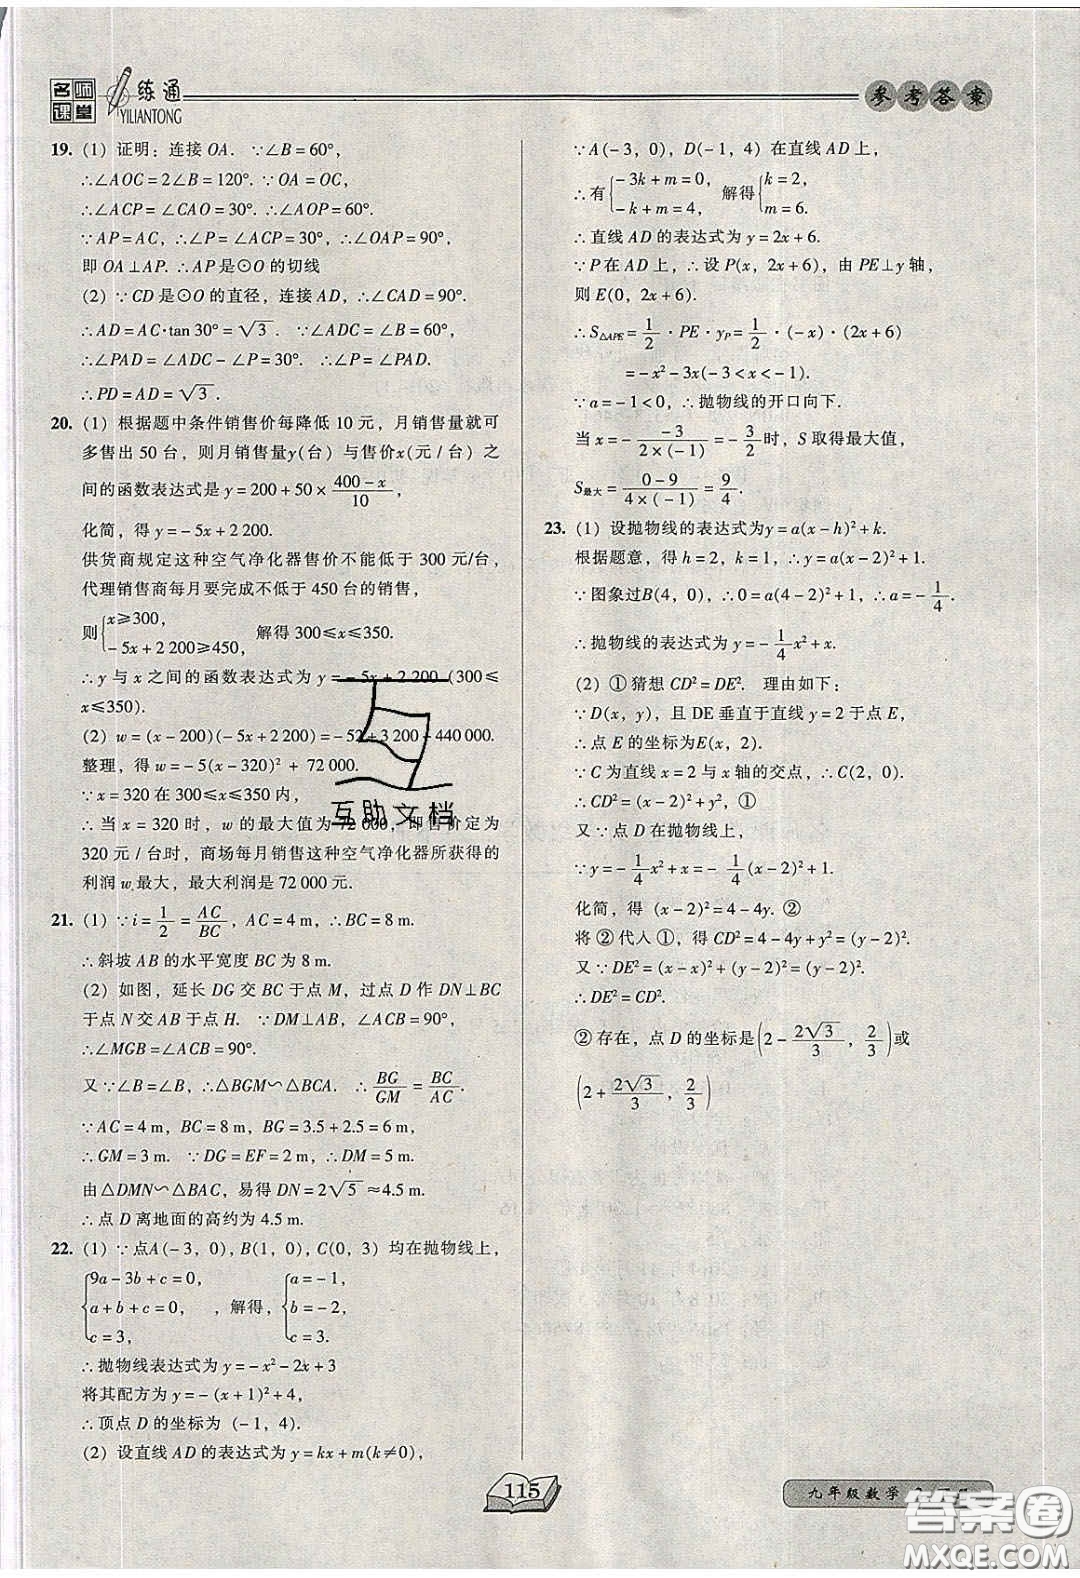 名师课堂
练通
YILIANTONG
参考答案
19. (1) 证明：连接 OA. ∵∠B=60°，
∴∠AOC=2∠B=120°. ∵OA=OC，
∴∠ACP=∠CAO=30°. ∴∠AOP=60°.
∵AP=AC，∴∠P=∠ACP=30°. ∴∠OAP=90°，
即 OA⊥AP. ∴AP 是⊙O 的切线
(2) ∵CD 是⊙O 的直径，连接 AD，∴∠CAD=90°.
∴AD=AC·tan 30°=√3. ∵∠ADC=∠B=60°，
∴∠PAD=∠ADC-∠P=30°. ∴∠P=∠PAD.
∴PD=AD=√3.
20. (1) 根据题中条件销售价每降低 10 元，月销售量就可
多售出 50 台，则月销售量y(台) 与售价x(元 / 台) 之
间的函数表达式是 y=200+50×(400-x)/10，
化简，得 y=-5x+2 200.
供货商规定这种空气净化器售价不能低于 300 元/台，
代理销售商每月要完成不低于 450 台的销售，
则{x≥300，
-5x+2 200≥450， 解得 300≤x≤350.
∴y 与 x 之间的函数表达式为 y=-5x+2 200 (300≤
x≤350).
(2) w=(x-200)(-5x+2 200)=-52+3 200-440 000.
整理，得 w=-5(x-320)²+72 000.
∵x=320 在 300≤x≤350 内，
∴当 x=320 时，w 的最大值为 72 000，即售价定为
320 元 / 台时，商场每月销售这种空气净化器所获得的
利润 w 最大，最大利润是 72 000 元.
21. (1) ∵i=1/2=AC/BC，AC=4 m，∴BC=8 m.
∴斜坡 AB 的水平宽度 BC 为 8 m.
(2) 如图，延长 DG 交 BC 于点 M，过点 D 作 DN⊥BC
于点 N 交 AB 于点 H. ∵DM⊥AB，∠ACB=90°，
∴∠MGB=∠ACB=90°.
又∵∠B=∠B，∴△BGM∽△BCA. ∴BG/GM=BC/AC.
∵AC=4 m，BC=8 m，BG=3.5+2.5=6 m，
∴GM=3 m. ∵DG=EF=2 m，∴DM=5 m.
由△DMN∽△BAC，易得 DN=2√5≈4.5 m.
∴点 D 离地面的高约为 4.5 m.
22. (1) ∵点A(-3，0)，B(1，0)，C(0，3) 均在抛物线上，
{9a-3b+c=0， {a=-1，
a+b+c=0， ，解得， b=-2，
c=3， c=3，
∴抛物线表达式为 y=-x²-2x+3
将其配方为 y=-(x+1)²+4，
∴顶点 D 的坐标为 (-1，4).
(2) 设直线 AD 的表达式为 y=kx+m(k≠0)，
∵A(-3，0)，D(-1，4) 在直线 AD 上，
∴有{-3k+m=0， 解得{k=2，
-k+m=4， m=6.
∴直线 AD 的表达式为 y=2x+6.
∵P 在 AD 上，∴设 P(x，2x+6)，由 PE⊥y 轴，
则 E(0，2x+6).
∴S△APE=1/2·PE·yP=1/2·(-x)·(2x+6)
=-x²-3x(-3<x<-1).
∵a=-1<0，∴抛物线的开口向下.
当 x=-(-3)/(2×(-1))=-3/2时，S 取得最大值，
S最大=(0-9)/(4×(-1))=9/4.
23. (1) 设抛物线的表达式为y=a(x-h)²+k.
根据题意，得 h=2，k=1，∴y=a(x-2)²+1.
∵图象过B(4，0)，∴0=a(4-2)²+1，∴a=-1/4.
∴抛物线的表达式为 y=-1/4x²+x.
(2) ①猜想 CD²=DE². 理由如下：
∵D(x，y)，且 DE 垂直于直线 y=2 于点 E，
∴点 E 的坐标为E(x，2).
∵C 为直线 x=2 与 x 轴的交点，∴C(2，0).
∴CD²=(x-2)²+y²，①
又∵点 D 在抛物线上，
∵y=-1/4x²+x=-1/4(x-2)²+1，
化简，得 (x-2)²=4-4y. ②
将②代人①，得 CD²=4-4y+y²=(y-2)².
又∵DE²=(x-x)²+(y-2)²=(y-2)².
∴DE²=CD².
②存在，点 D 的坐标是(2-2√3/3，2/3)或
(2+2√3/3，2/3)
互助文档
115
九年级数学
答案圈
MXQE.COM